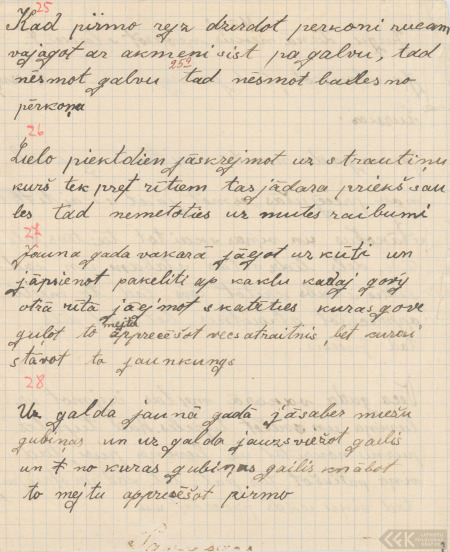 25
Kad pirmo reiz dzirdot perkoni rucam
vajagot ar akmeni sist pa galvu, tad
259
nēsmot galvu tad nēsmot bailes no
pērkoņa
26
Lielo piektdien jāskrejmot uz strautiņu
kurš tek pret rītiem tas jādara priekš sau
les tad nemetoties uz mutes raibumi
27
Jauna gada vakarā jāejot uz kūti un
jāpsienot pakeliti ap kaklu katraj govij
otrā rītā jāejmot skatities kuras gove
gulot to mejtu apprecēšot vecs atraitnis, bet kurai
stavot to jaunkungs
28
Uz galda jaunā gadā jāsaber miežu
gubiņas un uz galda jauzsviežot gailis
un no kuras gubiņas gailis knābot
to mejtu apprecēšot pirmo